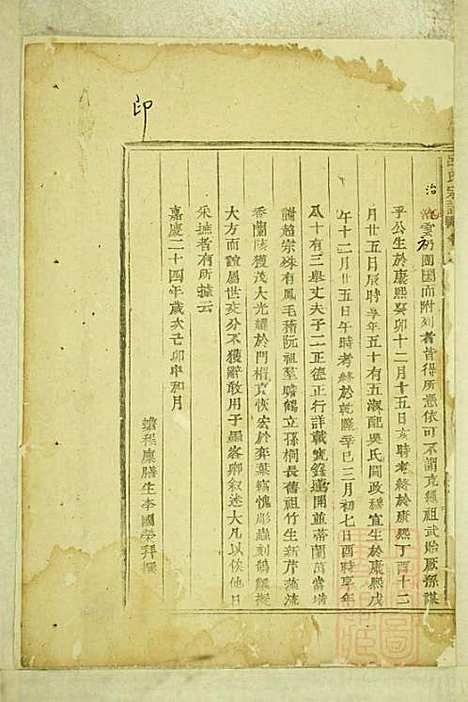 印
呂氏宗譜
治
團圓而附刻者皆得所憑依可不謂克繩祖武貽厥孫謀
乎公生於康熙癸卯十二月十五日亥時考終於康熙丁酉十二
月廿五日辰時享年五十有五淑配吳氏閫政穆宣生於康熙戊
午十二月廿五日午時考終於乾隆辛巳三月初七日酉時享年
八十有三舉丈夫子二正德正行詳載實錄蓮開並蒂蘭茁當增
謝趙宗姝有鳳毛積阮祖羣瞻鶴立孫桐長舊祖竹生新芹藻流
香蘭陵獲茂大光耀於門楣真恢宏於奕葉竊愧彫蟲刻鵠難擬
大方而誼屬世交分不獲辭敢用手墨畧聊叙述大凡以俟他日
采摭者有所據云
嘉慶二十四年歲次己卯中和月
廩膳生李國榮拜撰